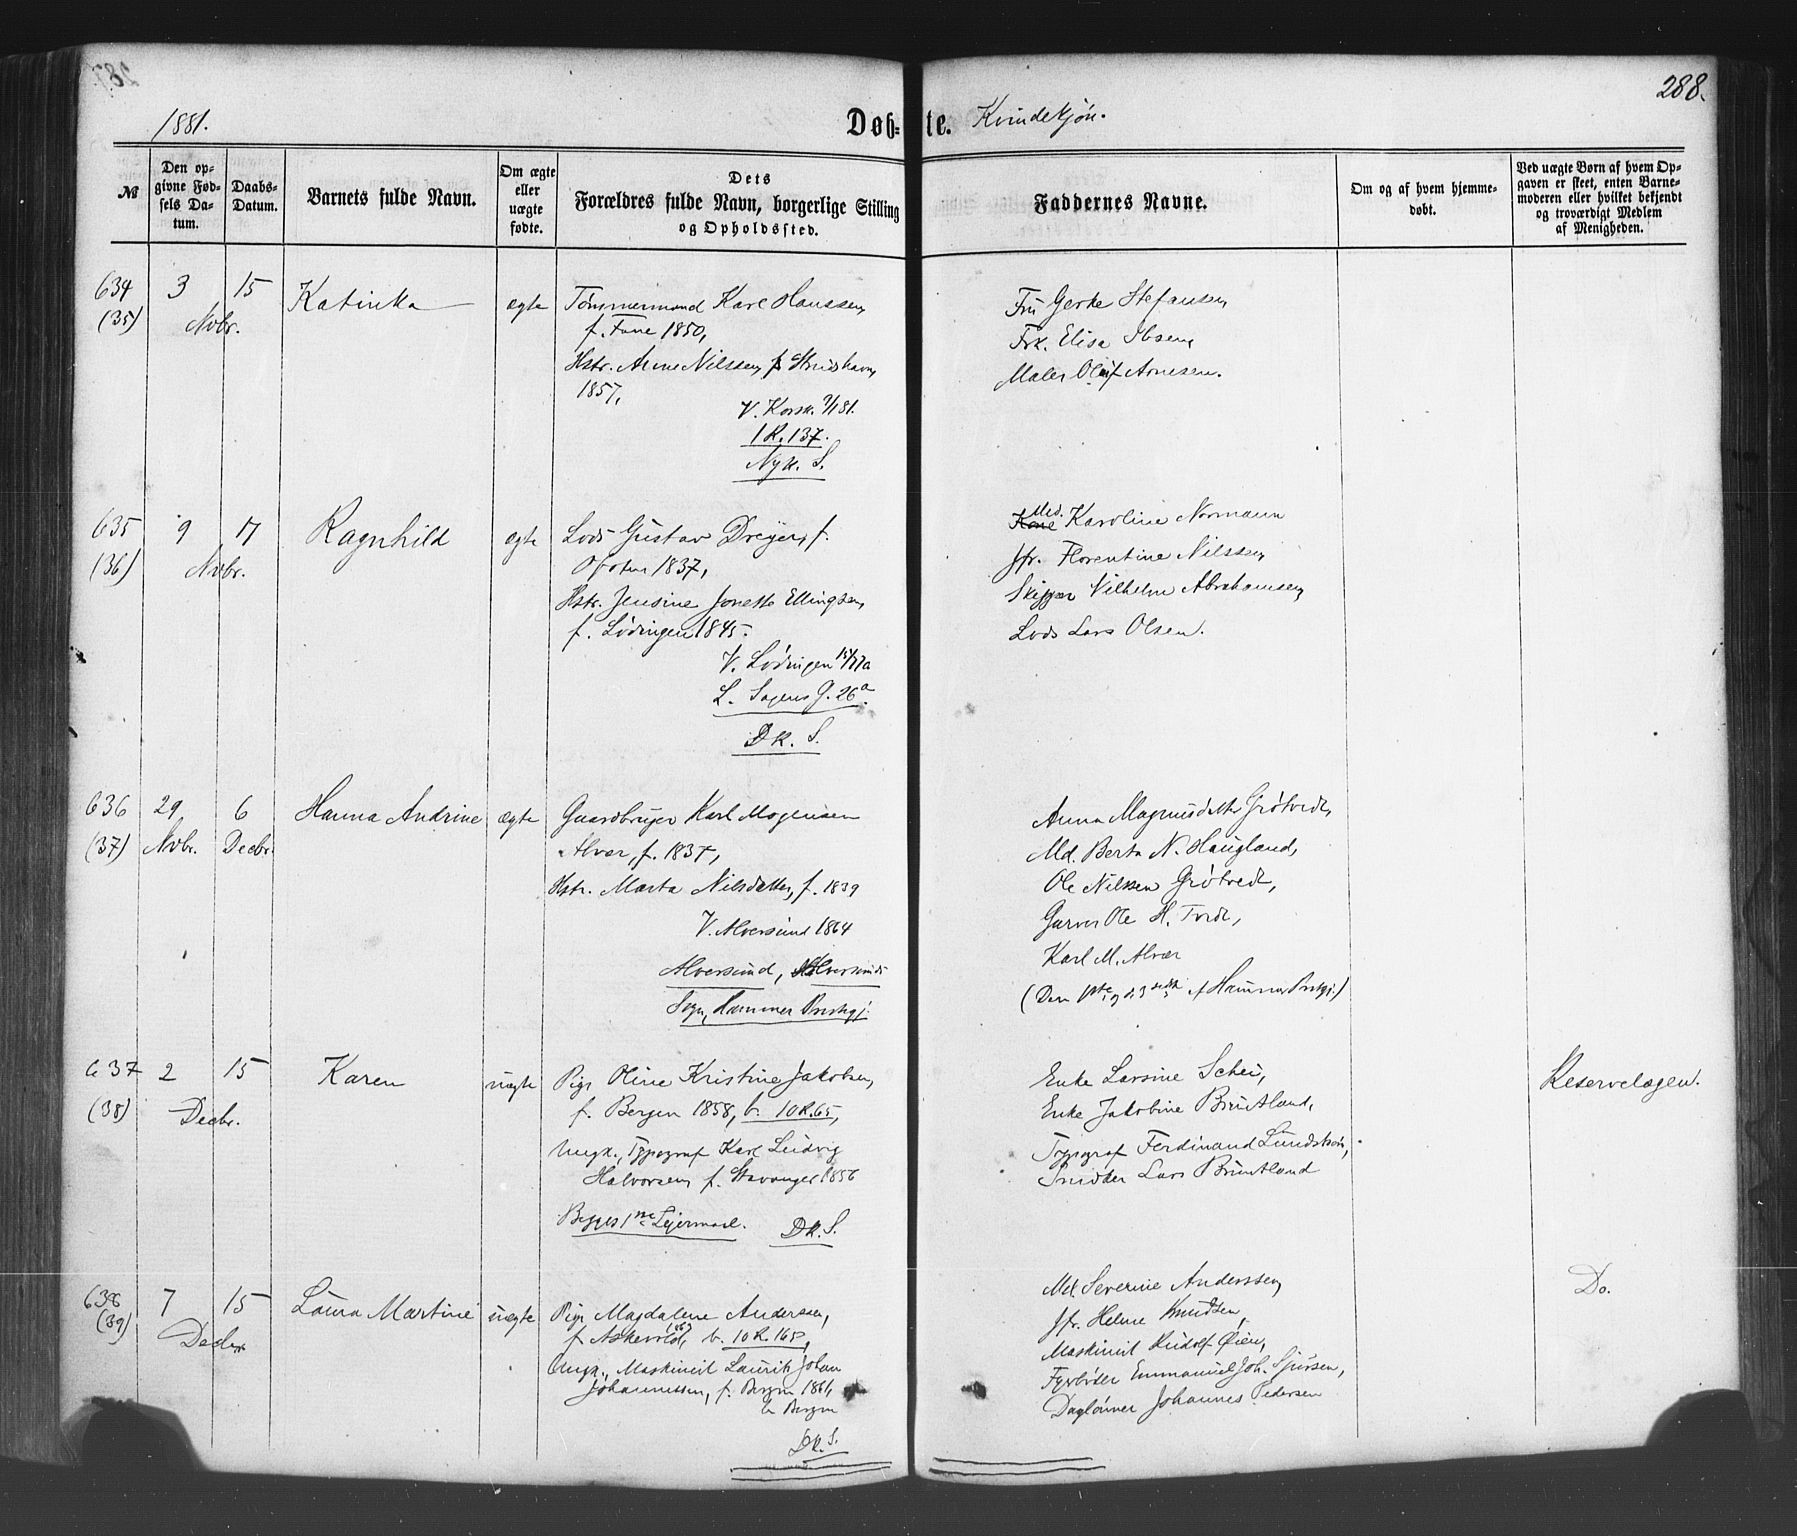 288.
1881.
Døb=te. Kvindekjøn.
№
Den op-
givne Fød-
sels Da-
tum.
Daabs-
Datum.
Barnets fulde Navn.
Om ægte
eller
uægte
fødte.
Dets
Forældres fulde Navn, borgerlige Stilling
og Opholdssted.
Faddernes Navne.
Om og af hvem hjemme-
døbt.
Ved uægte Børn af hvem Op-
gaven er skeet, enten Barne-
moderen eller hvilket bekjendt
og troværdigt Medlem
af Menigheden.
634 3 15 Katinka ægte Tømmermand Karl Hanssen,
(35) Nvbr. f. Fane 1850,
Hstr. Anne Nilssen, f.
1857,
V. Korsk.
1 R. 137.
Nyk. S.
Fru Gerke Stefansen,
Frk. Elisa Ibsen,
Maler Oluf Arnesen.
635 9 17 Ragnhild ægte Lods Gustav Dreyer, f.
(36) Nvbr. Ofoten 1837,
Hstr. Jensine Jonette Ellingsen,
f. Lødingen 1845.
V. Lødingen
L. Sagens G. 26a.
Dk. S.
Md. Karoline Normann
Jfr. Florentine Nilssen,
Skipper Vilhelm Abrahamsen,
Lods Lars Olsen.
636 29 6 Hanna Andrine ægte Gaardbruger Karl Mogensen
(37) Nvbr. Decbr. Alvær, f. 1837,
Hstr. Marta Nilsdatter, f. 1839
V. Alversund 1864
Alversund, Alversunds
Sogn, Hammer Prstgj.
Anna Magnusdatter Grøtvedt,
Md. Berta N. Haugland,
Ole Nilssen Grøtvedt,
Garver Ole H. Tvedt,
Karl M. Alvær
(Den 1ste og 3die af Hammer Prstgj.)
637 2 15 Karen uægte Pige Oline Kristine Jakobsen,
(38) Decbr. f. Bergen 1858, b. 10 R. 65,
Ungk., Typograf Karl Ludvig
Halvorsen, f. Stavanger 1856
Begges 1ste Leiermaal. Dk. S.
Enke Larsine Schei,
Enke Jakobine Bruntland,
Typograf Ferdinand
Snidker Lars Bruntland
Reservelægen.
638 7 15 Laura Martine uægte Pige Magdalene Anderssen,
(39) Decbr. f. Askevold, b. 10 R. 165,
Ungk., Maskinist Laurits Johan
Johannessen, f. Bergen 1861,
b. Bergen
Dk. S.
Md. Severine Anderssen,
Jfr. Helene Knudsen,
Maskinist Rudolf Øien,
Fyrbøder Emmanuel Joh. Sjursen,
Daglønner Johannes Pedersen
Do.